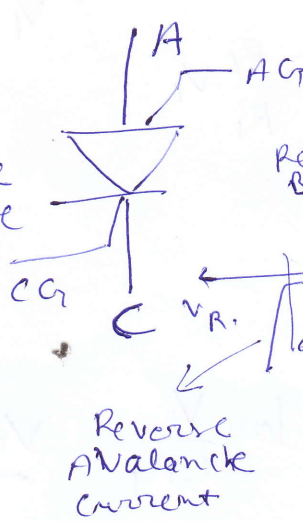 A
AG
CG
C
VR.
Reverse
AValanche
Current